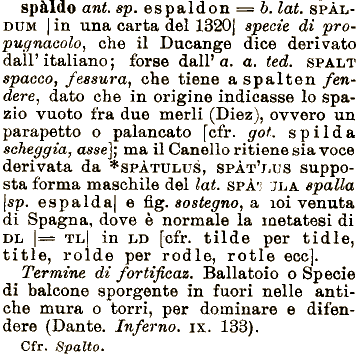 spàldo ant. sp. espaldon = b. lat. SPÀL-
DUM |in una carta del 1320| specie di pro-
pugnacolo, che il Ducange dice derivato
dall'italiano; forse dall'a. a. ted. SPALT
spacco, fessura, che tiene a spalten fen-
dere, dato che in origine indicasse lo spa-
zio vuoto fra due merli (Diez), ovvero un
parapetto o palancato [cfr. got. spilda
scheggia, asse]; ma il Canello ritiene sia voce
derivata da *SPÀTULUS, SPÀT'LUS suppo-
sta forma maschile del lat. spalla
|sp. espalda| e fig. sostegno, a noi venuta
di Spagna, dove è normale la metatesi di
DL |= TL| in LD [cfr. tilde per tidle,
title, rolde per rodle, rotle ecc].
Termine di fortificaz. Ballatoio o Specie
di balcone sporgente in fuori nelle anti-
che mura o torri, per dominare e difen-
dere (Dante. Inferno. IX. 133).
Cfr. Spalto.